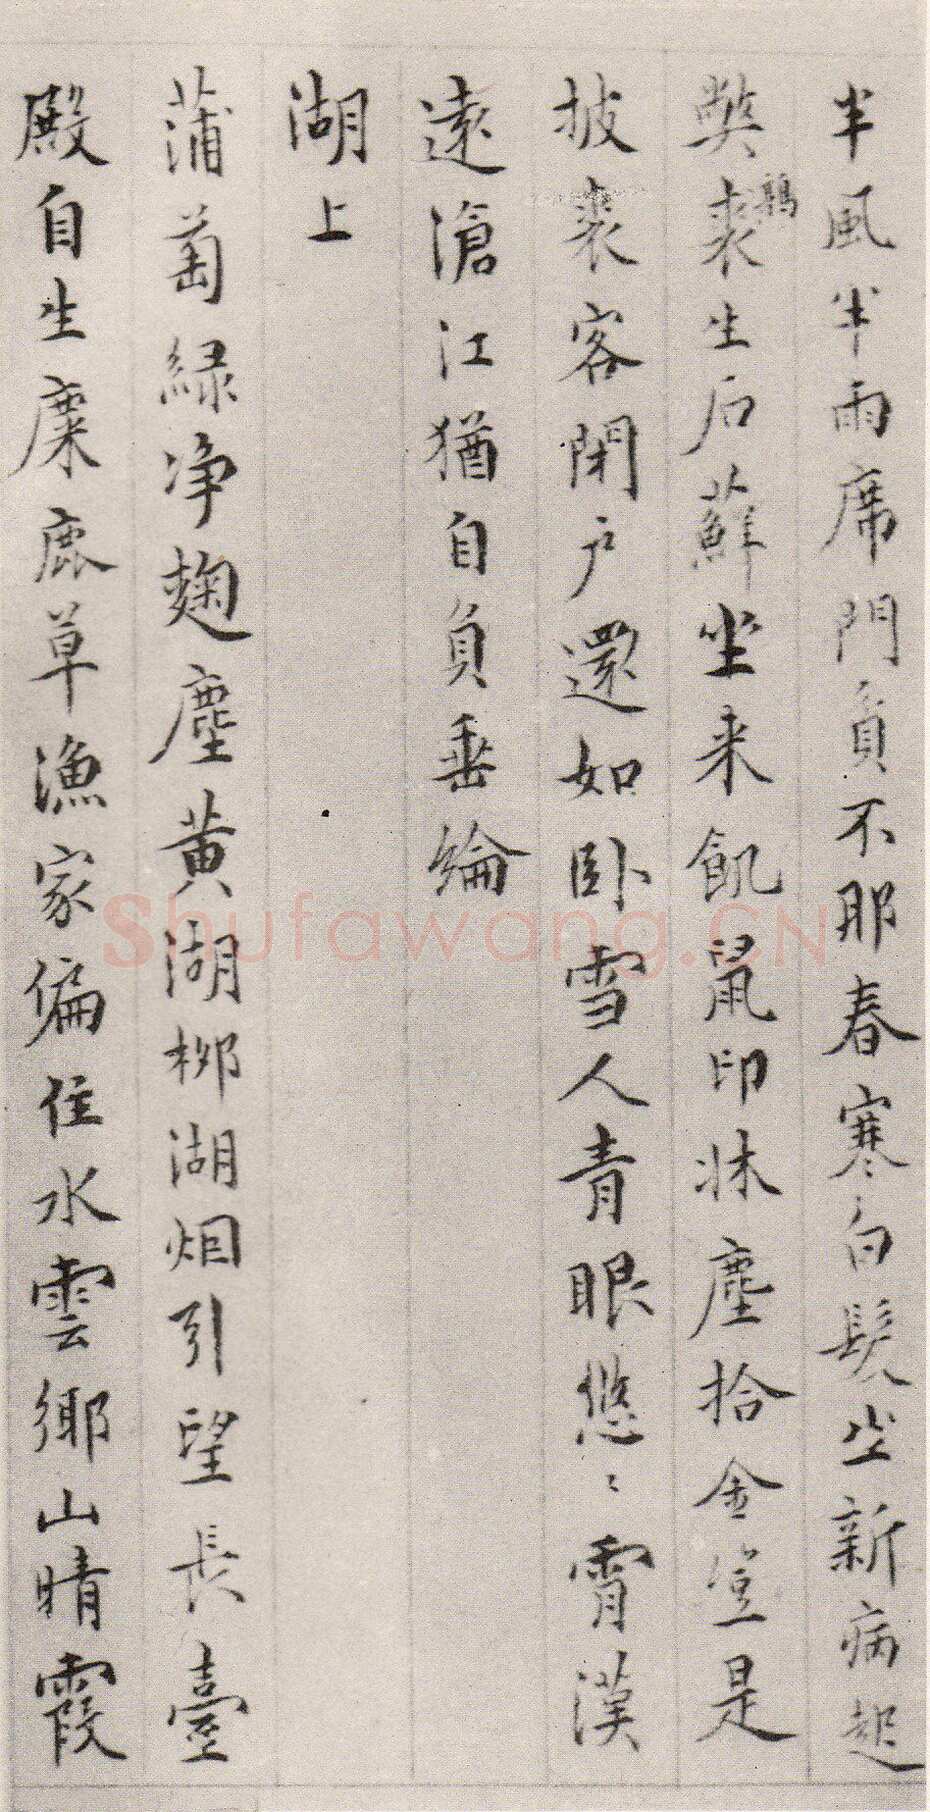 半風半雨席門貟不耶春寒白髮坐新病起
獘裘鶉生后蘚坐来飢鼠印牀塵拾金豈是
披裘客閉户還如卧雪人青眼悠〻霄漢
遠滄江猶自負垂綸
湖上
蒲萄緑净麹塵黄湖柳湖烟引望長臺
殿自生麋鹿草漁家偏住水雲鄉山晴霞
Shufawang.CN